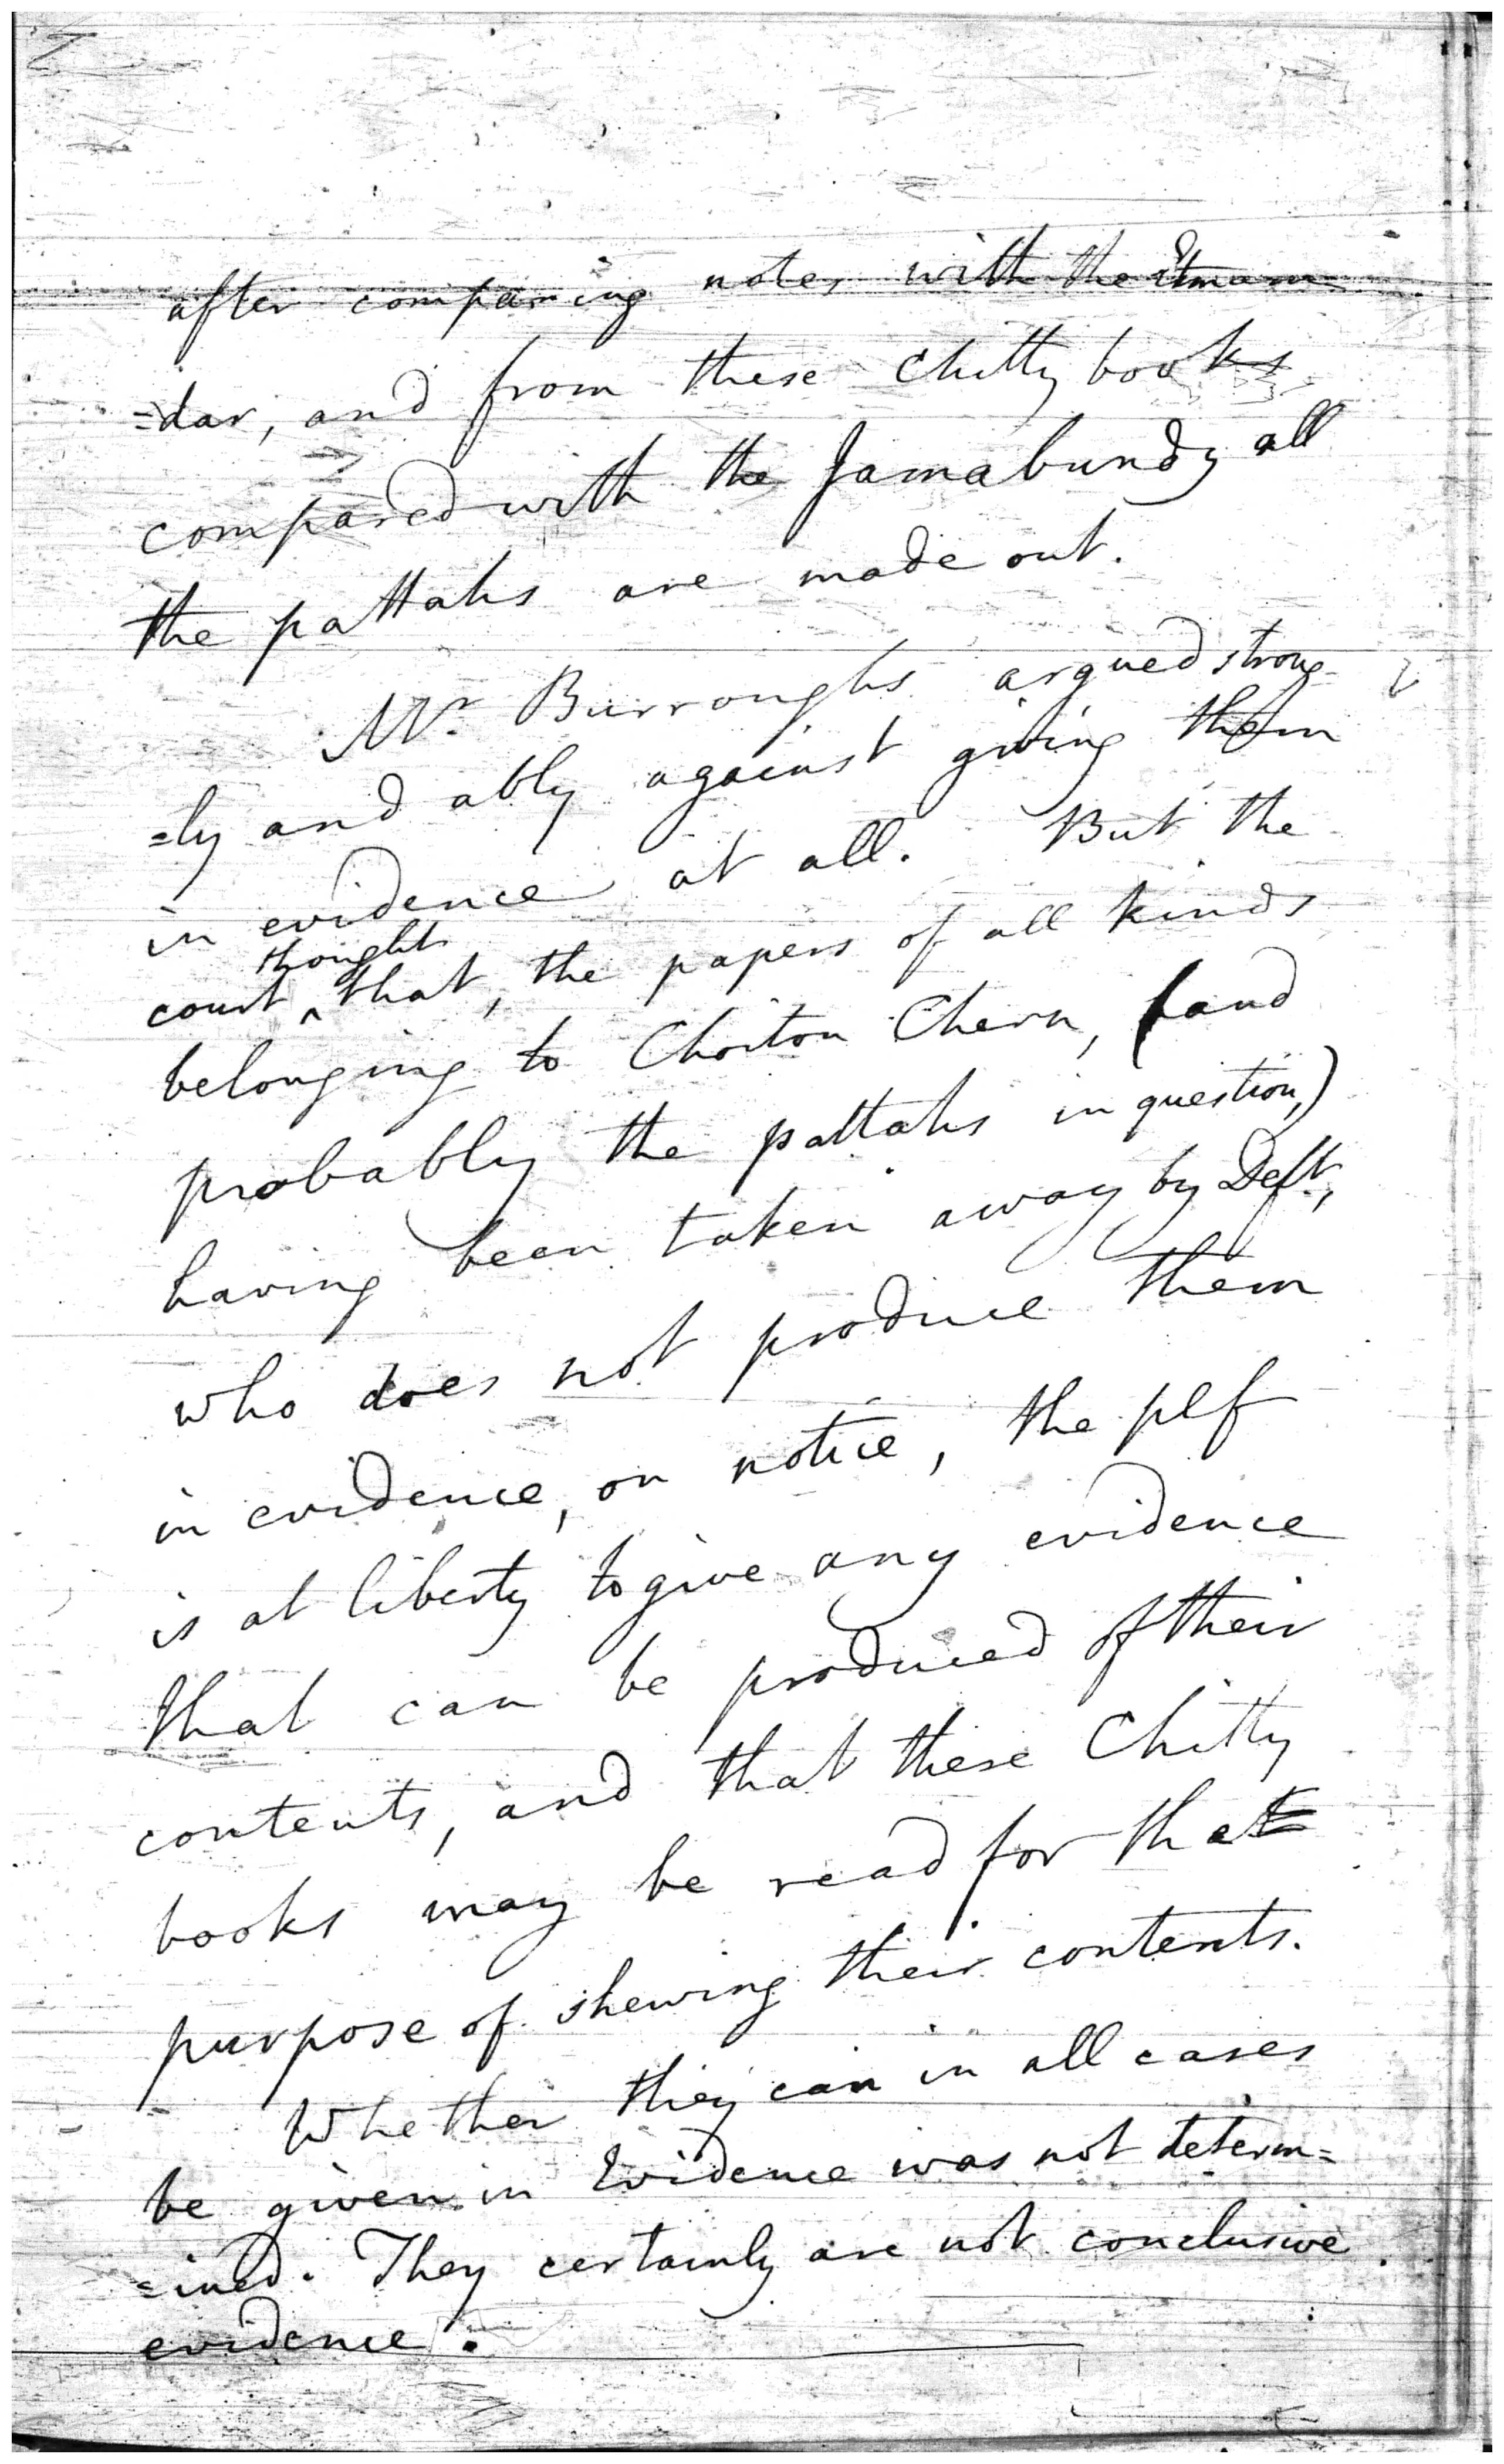 after comparing notes with the Etmam
=dar, and from these Chitty books
compared with the Jamabundy all
the pattahs are made out.
Mr. Burroughs argued strong
=ly and ably against giving them
in evidence at all. But the
thought
court ^ that, the papers of all kinds
belonging to Choiton Chern, (and
probably the pattahs in question,)
having been taken away by Deft.,
who does not produce them
in evidence, on notice, the plf
is at liberty to give any evidence
that can be produced of their
contents, and that these Chitty
books may be read for that
purpose of shewing their contents.
Whether they can in all cases
be given in Evidence was not determ=
=ined. They certainly are not conclusive
evidence.